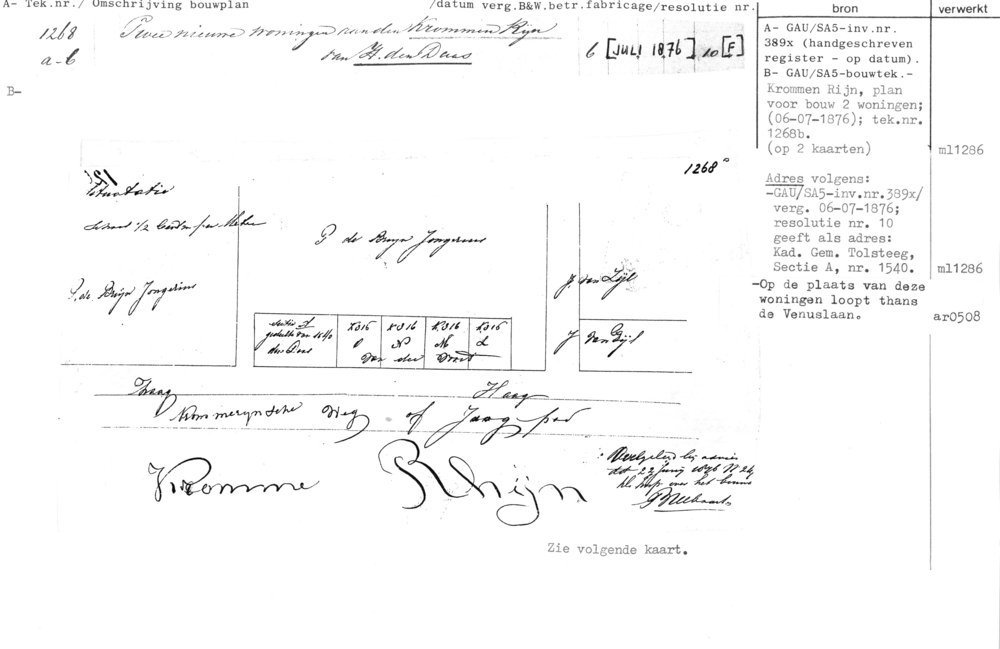 A- Tek.nr./ Omschrijving bouwplan /datum verg.B&W.betr.fabricage/resolutie nr.
bron
verwerkt
1268 Twee nieuwe woningen aan den Krommen Rijn
a-b van H. den Daas 6 [JULI 1876] 10 [F]
B-
A- GAU/SA5-inv.nr.
389x (handgeschreven
register - op datum).
B- GAU/SA5-bouwtek.-
Krommen Rijn, plan
voor bouw 2 woningen;
(06-07-1876); tek.nr.
1268b.
(op 2 kaarten) ml1286
Adres volgens:
-GAU/SA5-inv.nr.389x/
verg. 06-07-1876;
resolutie nr. 10
geeft als adres:
Kad. Gem. Tolsteeg,
Sectie A, nr. 1540. ml1286
-Op de plaats van deze
woningen loopt thans
de Venuslaan. ar0508
1268a
Situatie
P de Bruyn Jongerius
P. de Bruyn Jongerius
J. van Zijl
J van Zijl
sectie A
gedeelte van 1540
den Daas
K316 K316 K316 K316
O N M L
van der Voort
Haag Haag
Krommerynsche Weg of Jaag pad
Kromme Rhijn
dat 22 Junij 1876 N 24
Zie volgende kaart.